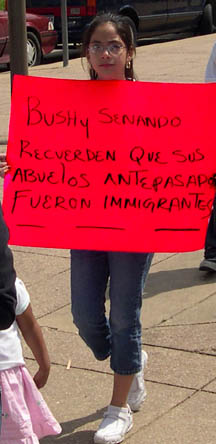 BUSHY SENANDO
RECUERDEN QUE SUS
ABUELOS ANTEPASADO
FUERON IMMIGRANTES